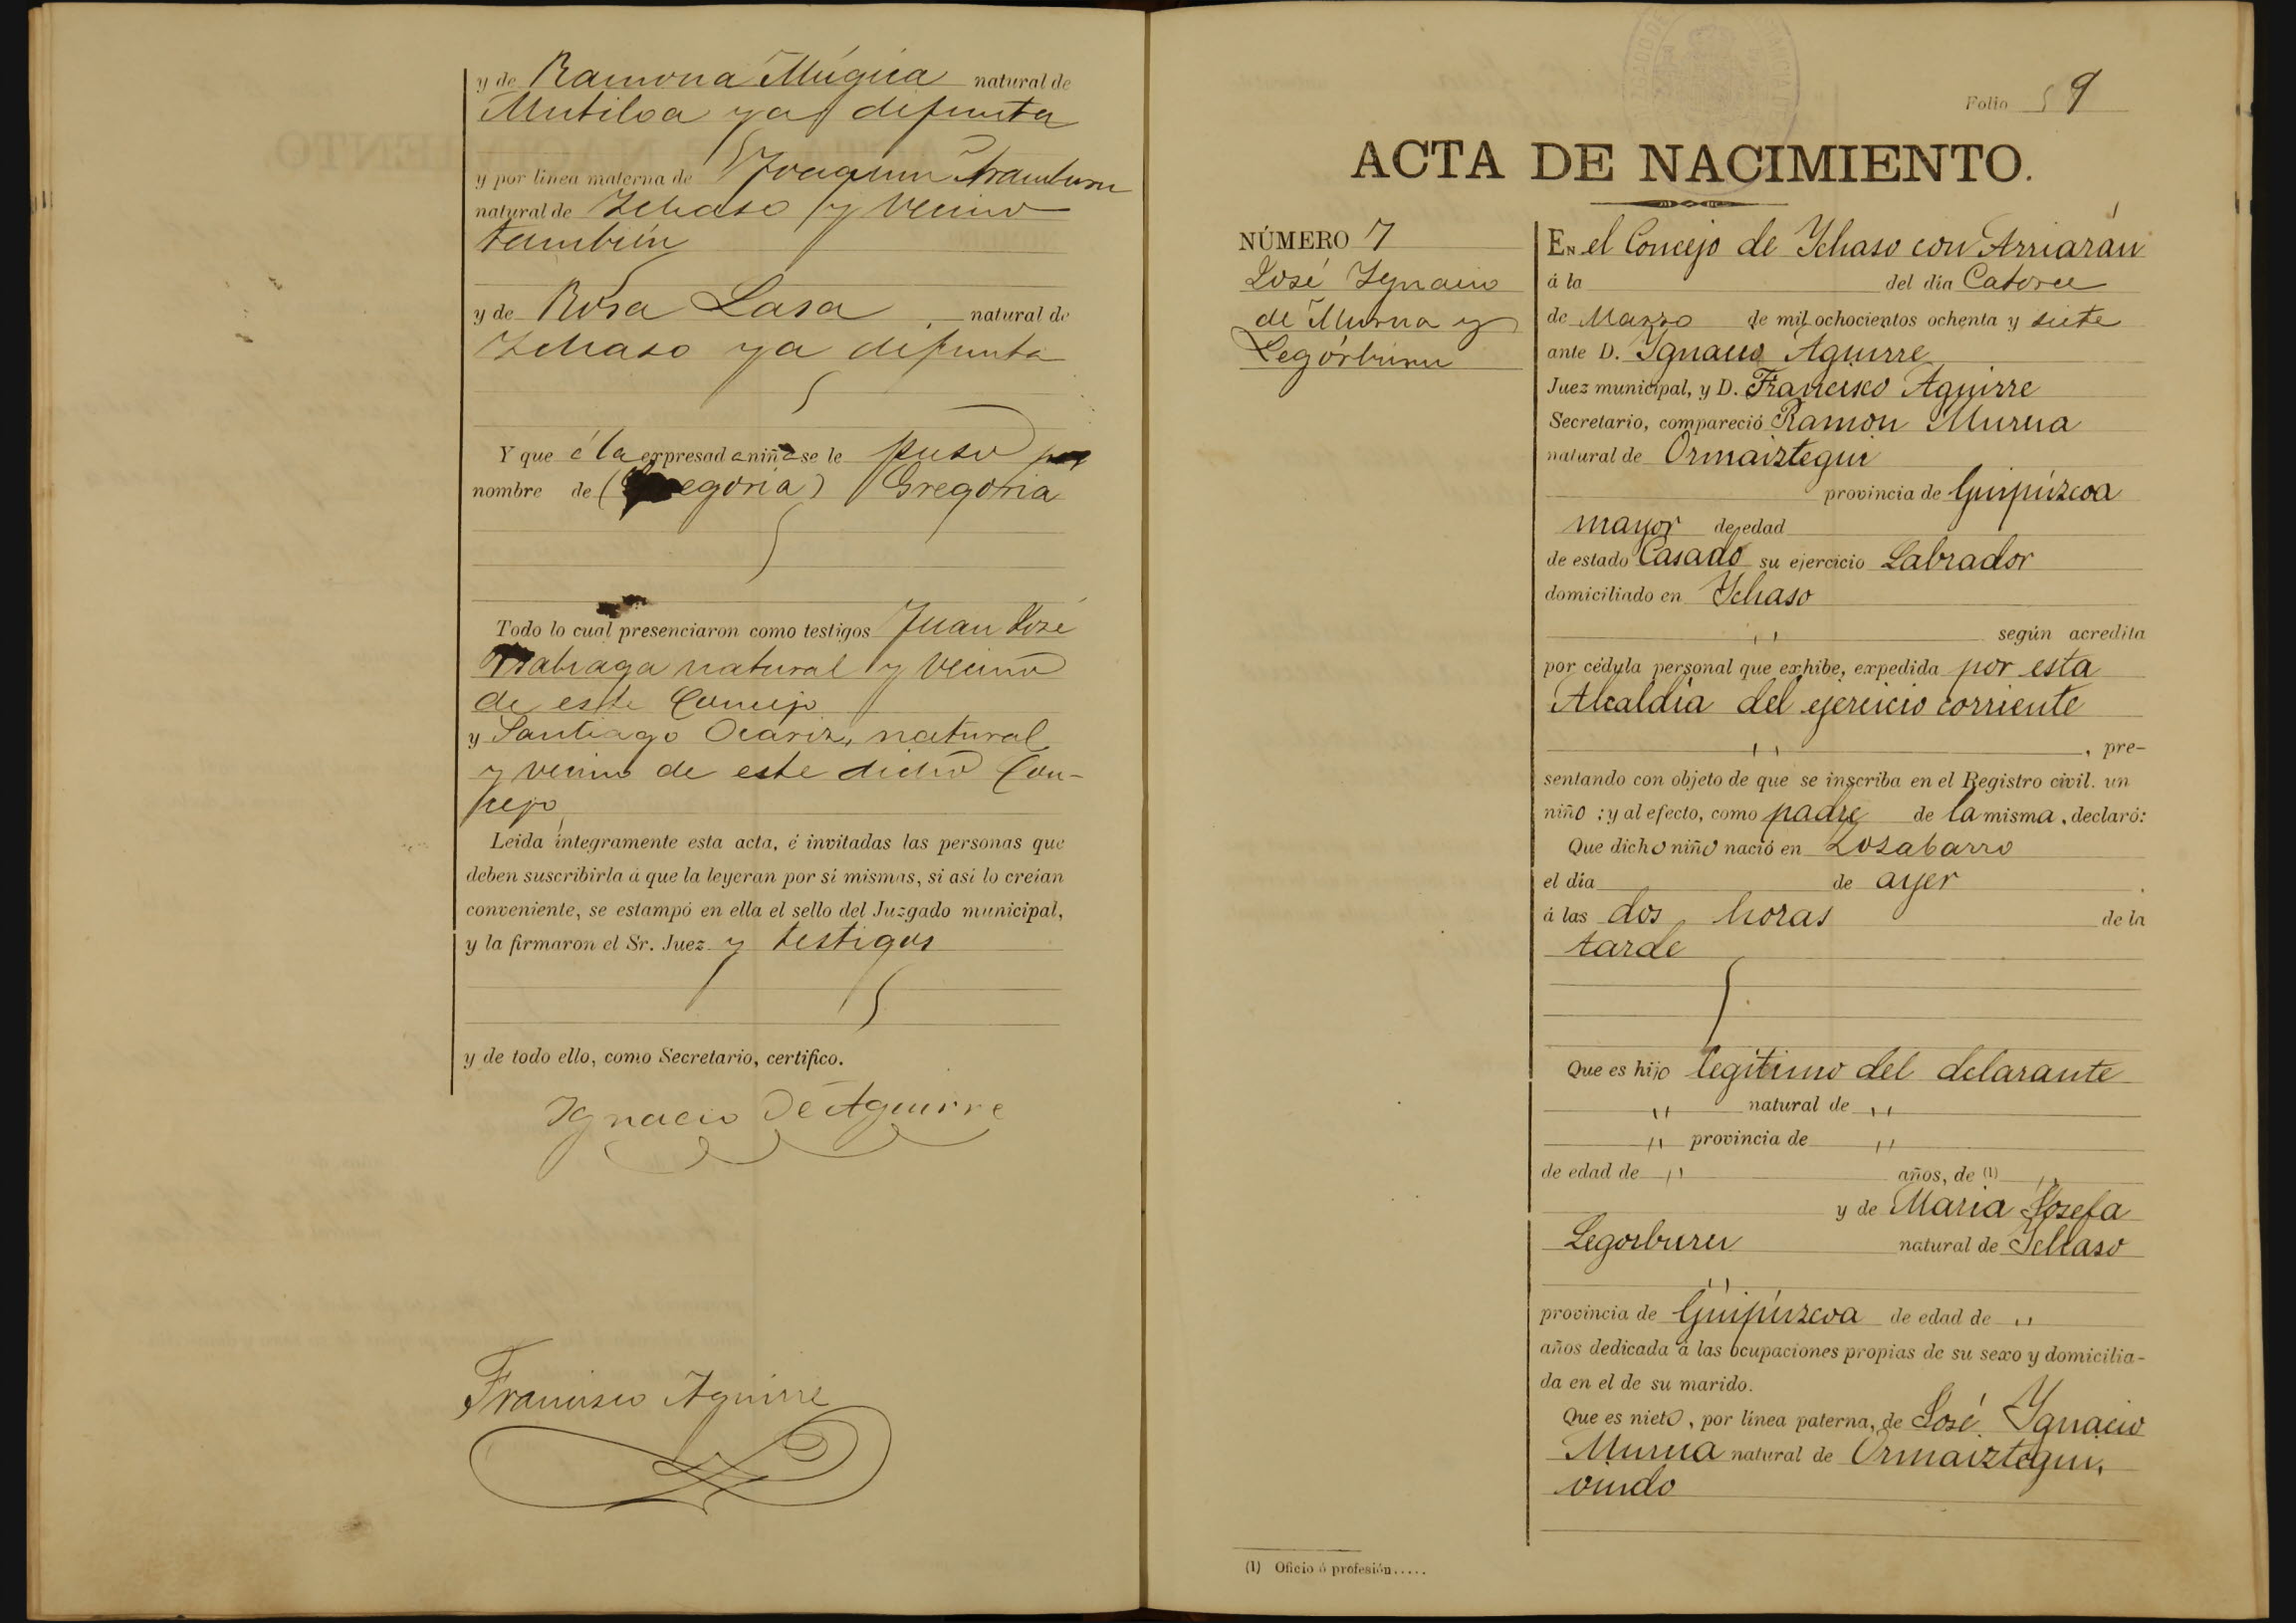 y de Ramona Múgica natural de
Mutiloa ya difunta
y por linea materna de Joaquin Aramburu
natural de Ichaso y vecino
también
y de Rosa Lasa natural de
Ichaso ya difunta
Y que á la expresada niña se le puso por
nombre de (Gregoria) Gregoria
Todo lo cual presenciaron como testigos Juan José
natural y vecino
de este Concejo
y Santiago Ocariz, natural
y vecino de este dicho Con-
cejo
Leida íntegramente esta acta, é invitadas las personas que
deben suscribirla á que la leyeran por sí mismas, si así lo creían
conveniente, se estampó en ella el sello del Juzgado municipal,
y la firmaron el Sr. Juez y testigos
y de todo ello, como Secretario, certifico.
Ignacio De Aguirre
Francisco Aguirre
Folio 9
ACTA DE NACIMIENTO.
NÚMERO 7
José Ignacio
de Murua y
Legórburu
EN el Concejo de Ychaso con Arriarán
á la del día Catorce
de Marzo de mil ochocientos ochenta y siete
ante D. Ygnacio Aguirre
Juez municipal, y D. Francisco Aguirre
Secretario, compareció Ramon Murua
natural de Ormaiztegui
provincia de Guipúzcoa
mayor de edad
de estado Casado su ejercicio Labrador
domiciliado en Ychaso
según acredita
por cédula personal que exhibe, expedida por esta
Alcaldia del ejercicio corriente
, pre-
sentando con objeto de que se inscriba en el Registro civil. un
niño ; y al efecto, como padre de la misma, declaró:
Que dicho niño nació en Losabarro
el día de ayer
á las dos horas de la
tarde
Que es hijo legitimo del delarante
,, natural de ,,
,, provincia de ,,
de edad de ,, años, de (1) ,,
y de Maria Josefa
Legorburu natural de Ychaso
,,
provincia de Guipúzcoa de edad de ,,
años dedicada á las ocupaciones propias de su sexo y domicilia-
da en el de su marido.
Que es nieto, por línea paterna, de José Ygnacio
Murua natural de Ormaiztegui,
viudo
(1) Oficio ó profesión.....